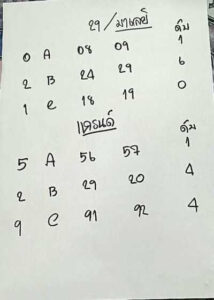 29/มาเลย์ ดับ
0 A 08 09 1
2 B 24 29 6
1 C 18 19 0
แครนด์ ดับ
5 A 56 57 1
2 B 29 20 4
9 C 91 92 4